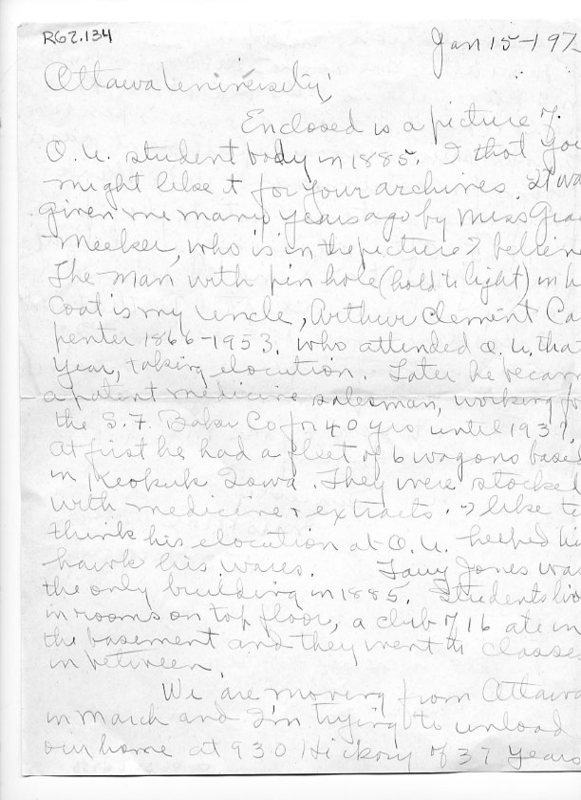 R62.134
Jan 15-197
Ottawa University;
Enclosed is a picture of
O.U. student body in 1885. I that you
might like it for your archives. It wa
given me many years ago by Miss Grac
Meeker, who is in the picture I believe
The man with pin hole (hold to light) in h
coat is my uncle, Arthur Clement Ca
penter 1866-1953, who attended O.U. that
year, taking elocution. Later he becam
a patent medicine salesman, working fo
the S.F. Baker Co for 40 yrs until 193
At first he had a fleet of 6 wagons based
in Keokuk Iowa. They were stocked
with medicine & extracts. I like to
think his elocution at O.U. helped hi
hawk his wares. Tauy Jones was
the only building in 1885. Students liv
in rooms on top floor, a club of 16 ate in
the basement and they went to classes
in between.
We are moving from Ottawa
in March and I'm trying to unload
our home at 930 Hickory of 37 years